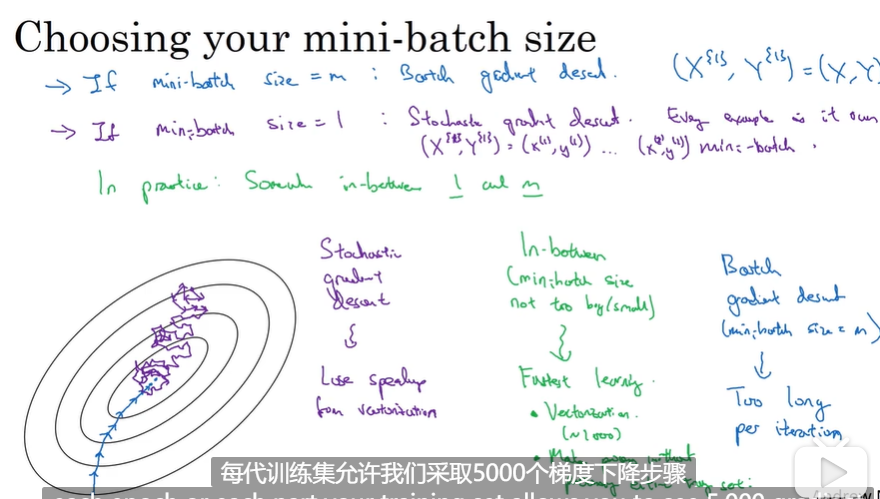 Choosing your mini-batch size
→ If mini-batch size = m : Batch gradient descent. (X^{1}, Y^{1}) = (X, Y)
→ If mini-batch size = 1 : Stochastic gradient descent. Every example is it own
(X^{1}, Y^{1}) = (x^(1), y^(1)) ... mini-batch.
In practice: Somewhere in-between 1 and m
Stochastic
gradient
descent
Lose speedup
from vectorization
In-between
(mini-batch size
not too big/small)
Fastest learning.
• Vectorization.
(~1000)
• Make without
Batch
gradient descent
(mini-batch size = m)
Too long
per iteration
每代训练集允许我们采取5000个梯度下降步骤